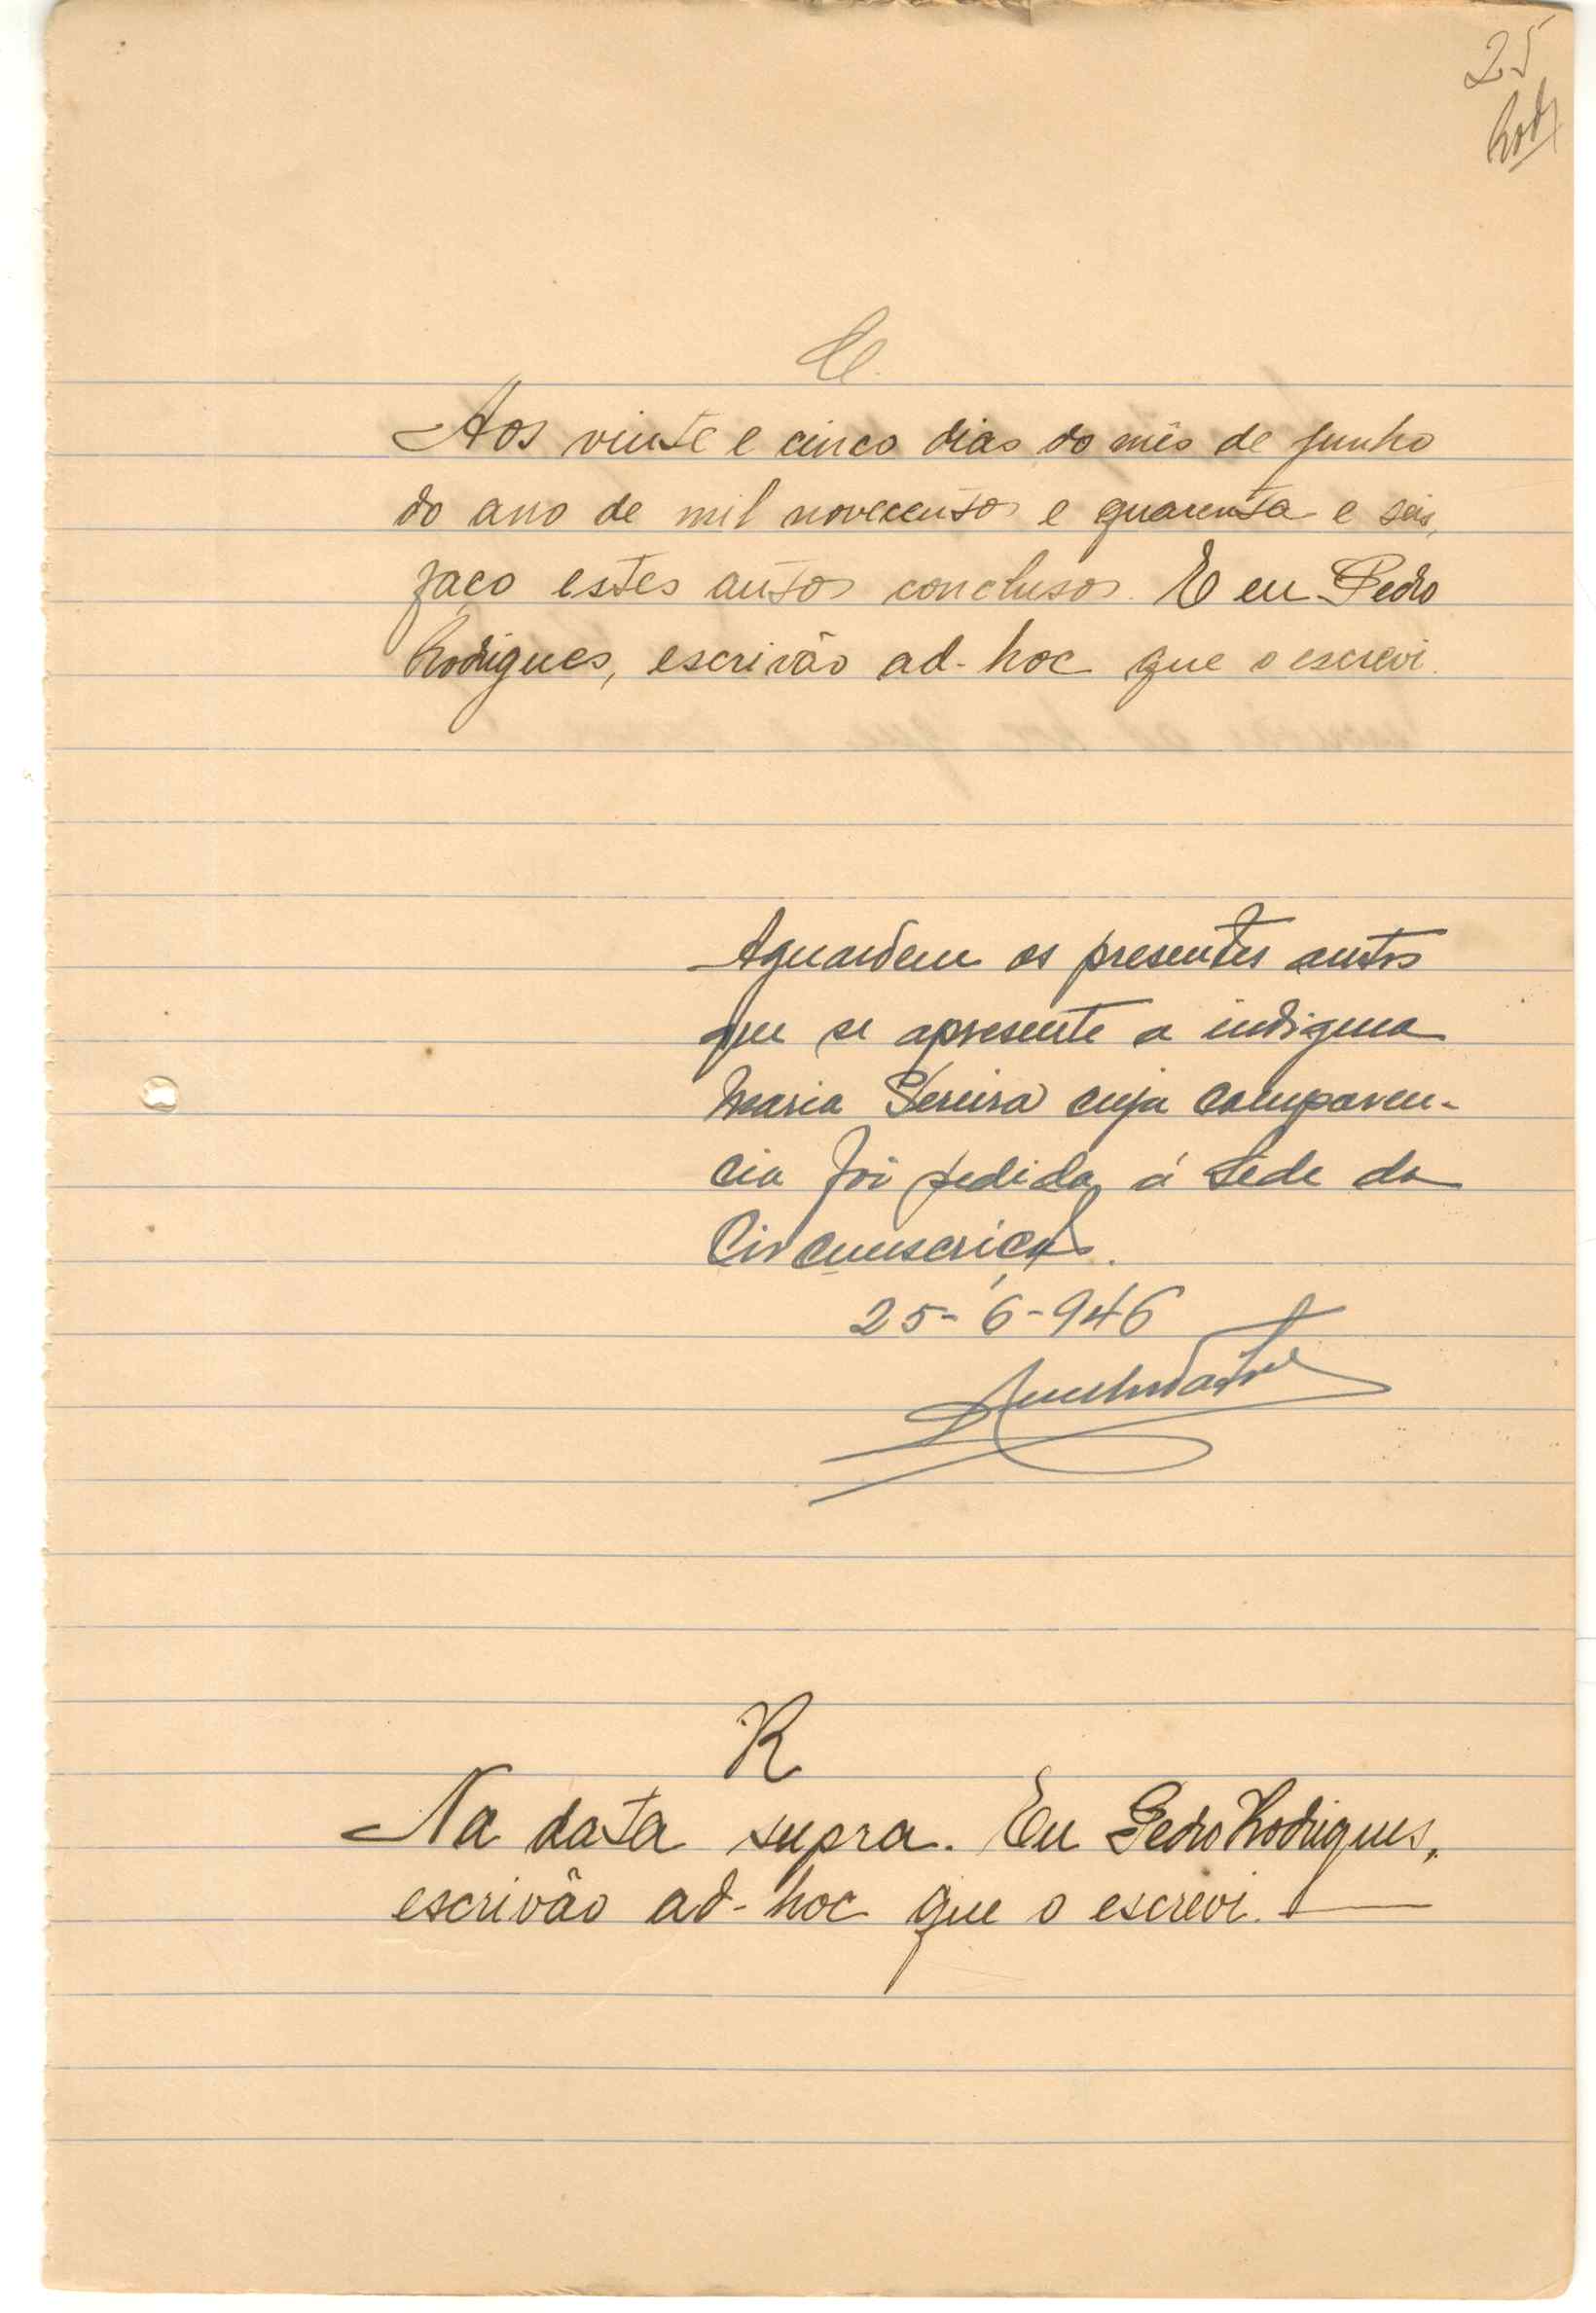 25
Rod.
Cl.
Aos vinte e cinco dias do mês de Junho
do ano de mil novecentos e quarenta e seis,
faço estes autos conclusos. E eu Pedro
Rodrigues, escrivão ad-hoc que o escrevi.
Aguardem os presentes autos
que se apresente a indigena
Maria Pereira cuja comparen-
cia foi pedida á Séde da
Circunscrição.
25-6-946
R
Na data supra. Eu Pedro Rodrigues,
escrivão ad-hoc que o escrevi.